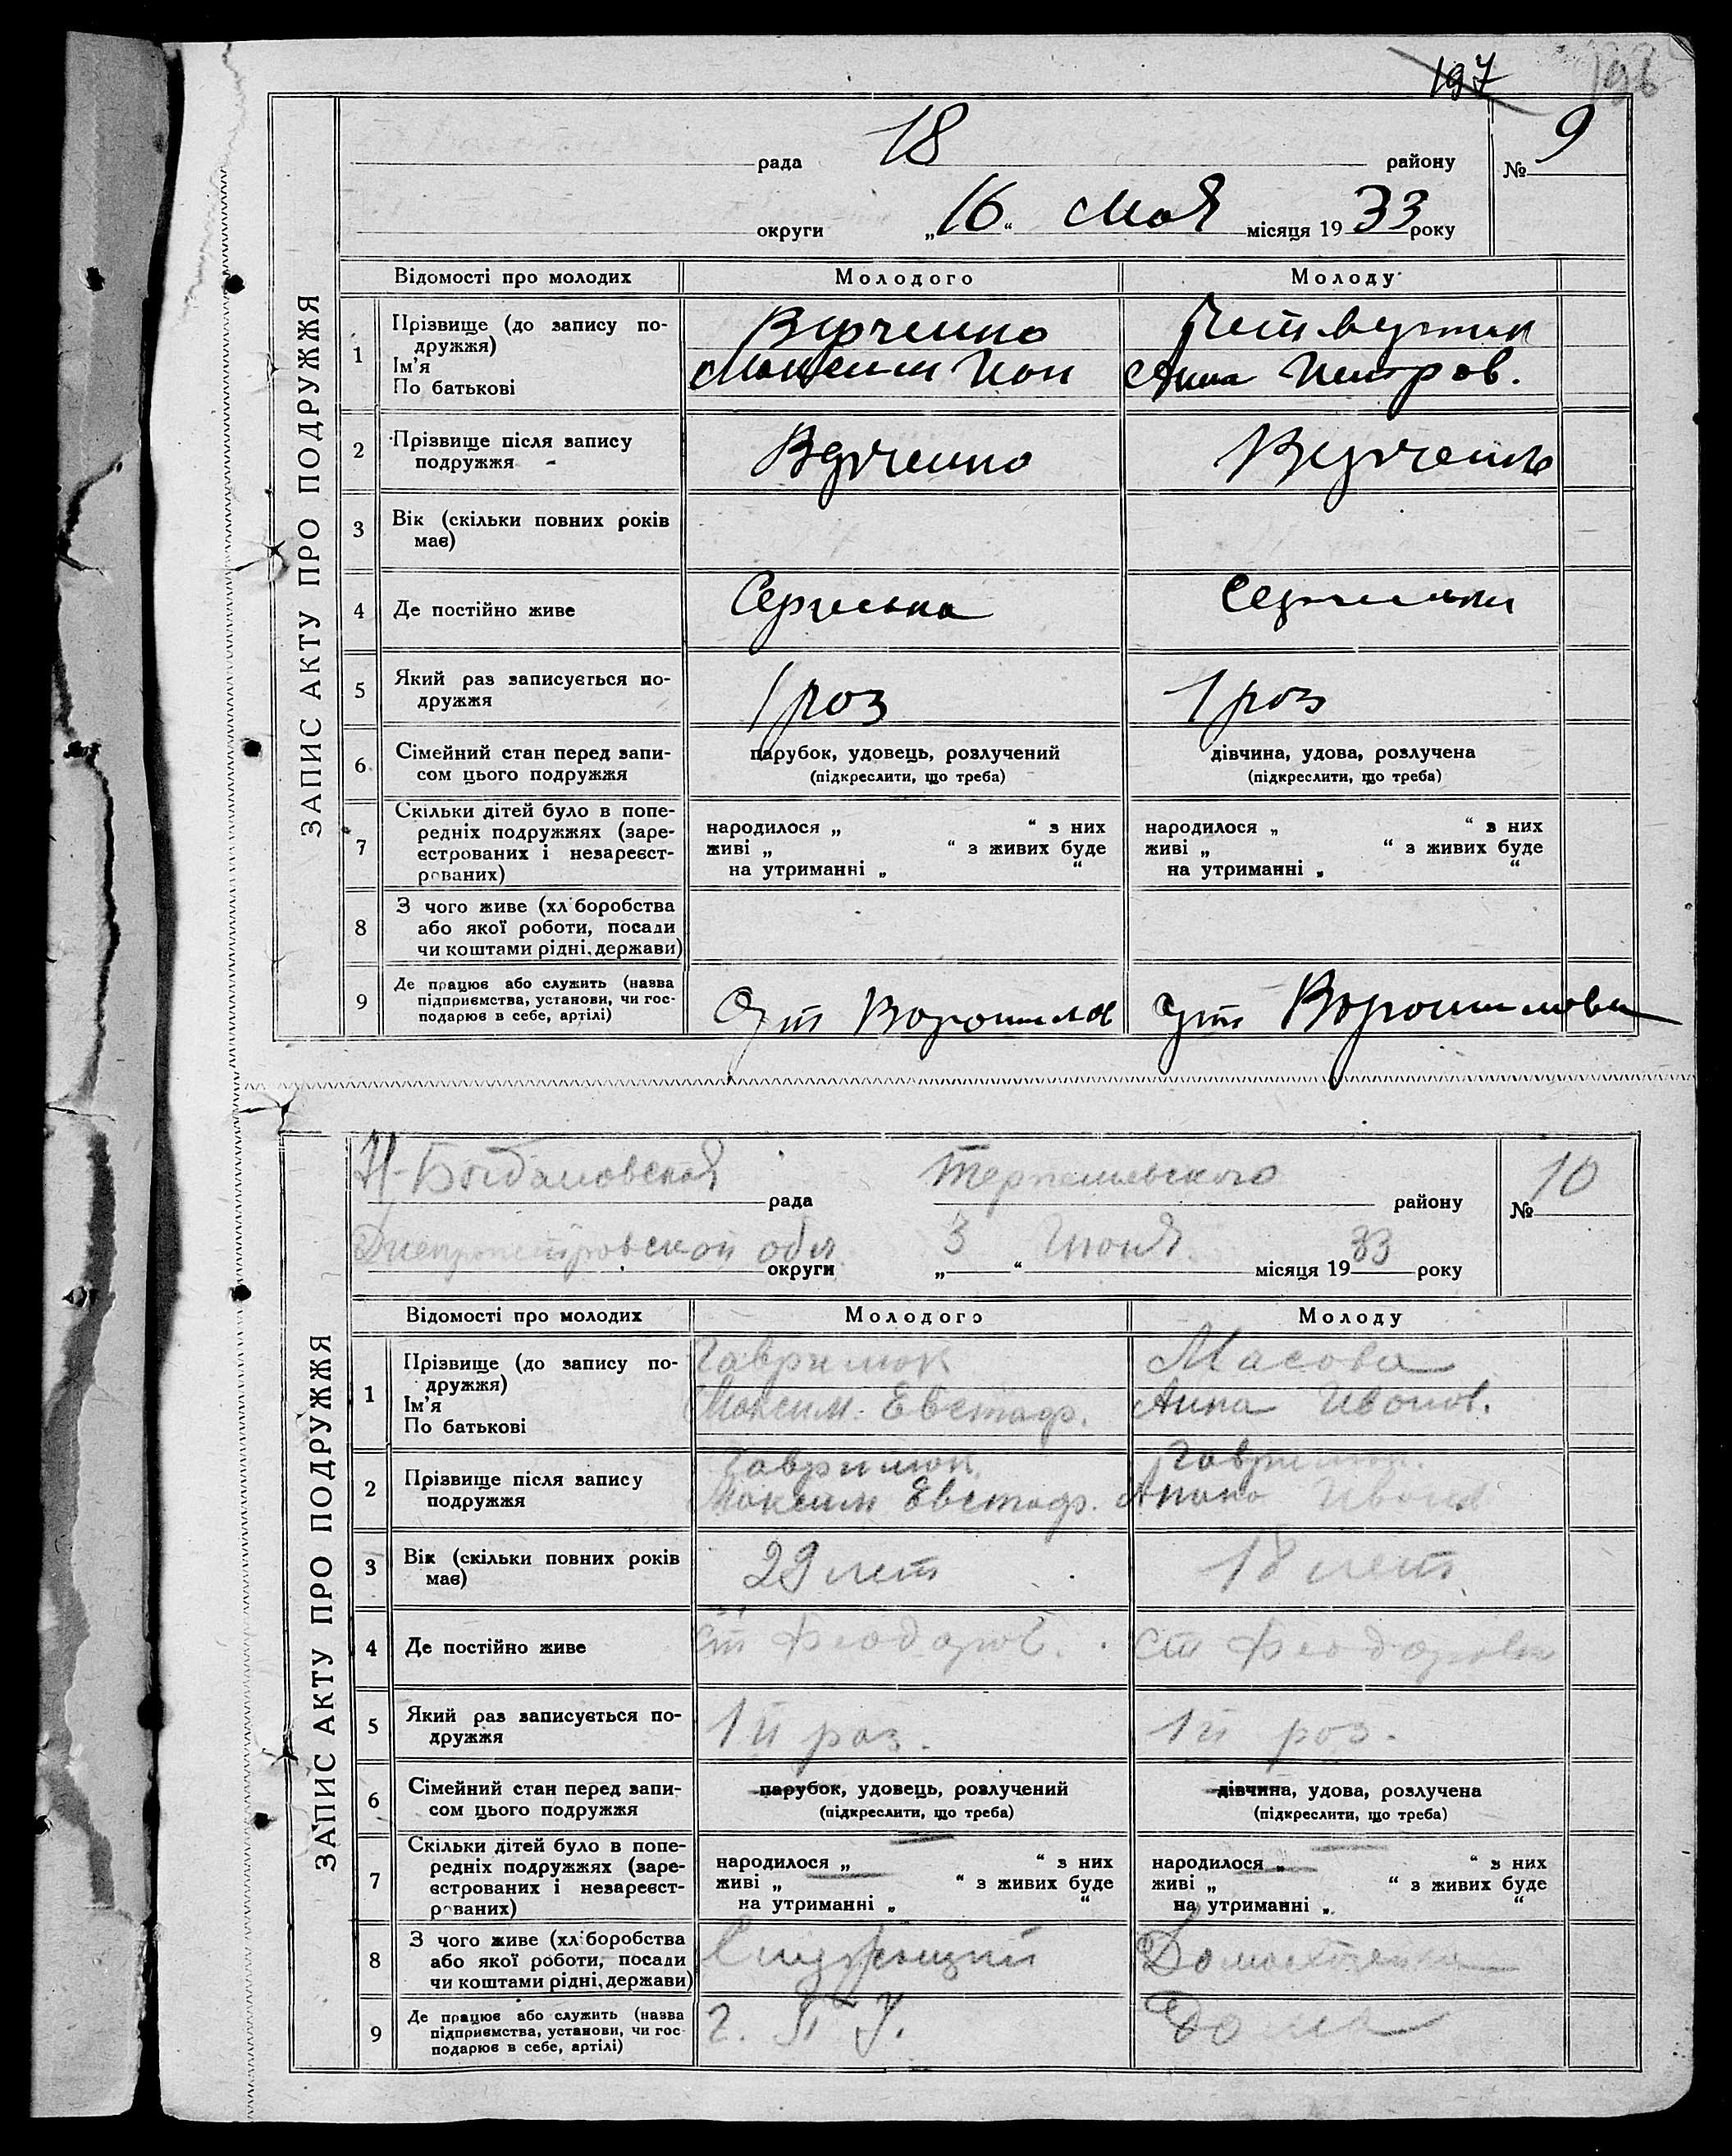 197 196
ЗАПИС АКТУ ПРО ПОДРУЖЖЯ
рада 18 району № 9
округи „16“ Мая місяця 1933 року
Відомості про молодих Молодого Молоду
1 Прізвище (до запису по-
дружжя)
Ім'я
По батькові
Анна Петров.
2 Прізвище після запису
подружжя
3 Вік (скільки повних років
має)
4 Де постійно живе
5 Який раз записується по-
дружжя
1 роз 1 роз
6 Сімейний стан перед запи-
сом цього подружжя
парубок, удовець, розлучений
(підкреслити, що треба)
дівчина, удова, розлучена
(підкреслити, що треба)
7 Скільки дітей було в попе-
редніх подружжях (заре-
єстрованих і незареєст-
рованих)
народилося „ “ з них
живі „ “ з живих буде
на утриманні „ “
народилося „ “ з них
живі „ “ з живих буде
на утриманні „ “
8 З чого живе (хліборобства
або якої роботи, посади
чи коштами рідні, держави)
9 Де працює або служить (назва
підприємства, установи, чи гос-
подарює в себе, артілі)
Ворошилов Ворошилова
ЗАПИС АКТУ ПРО ПОДРУЖЖЯ
Н-Богдановская рада району № 10
Днепропетровской обл. округи „3“ Июня місяця 1933 року
Відомості про молодих Молодого Молоду
1 Прізвище (до запису по-
дружжя)
Ім'я
По батькові
Гаврилюк Масова
Максим Евстаф. Анна Иванов.
2 Прізвище після запису
подружжя
Гаврилюк Гаврилюк.
Максим Евстаф.
3 Вік (скільки повних років
має)
29 лет 18 лет
4 Де постійно живе
ст Феодоров. ст Феодоровка
5 Який раз записується по-
дружжя
1й раз. 1й роз.
6 Сімейний стан перед запи-
сом цього подружжя
парубок, удовець, розлучений
(підкреслити, що треба)
дівчина, удова, розлучена
(підкреслити, що треба)
7 Скільки дітей було в попе-
редніх подружжях (заре-
єстрованих і незареєст-
рованих)
народилося „ “ з них
живі „ “ з живих буде
на утриманні „ “
народилося „ “ з них
живі „ “ з живих буде
на утриманні „ “
8 З чого живе (хліборобства
або якої роботи, посади
чи коштами рідні, держави)
Служащий
9 Де працює або служить (назва
підприємства, установи, чи гос-
подарює в себе, артілі)
Г. П У. Дома